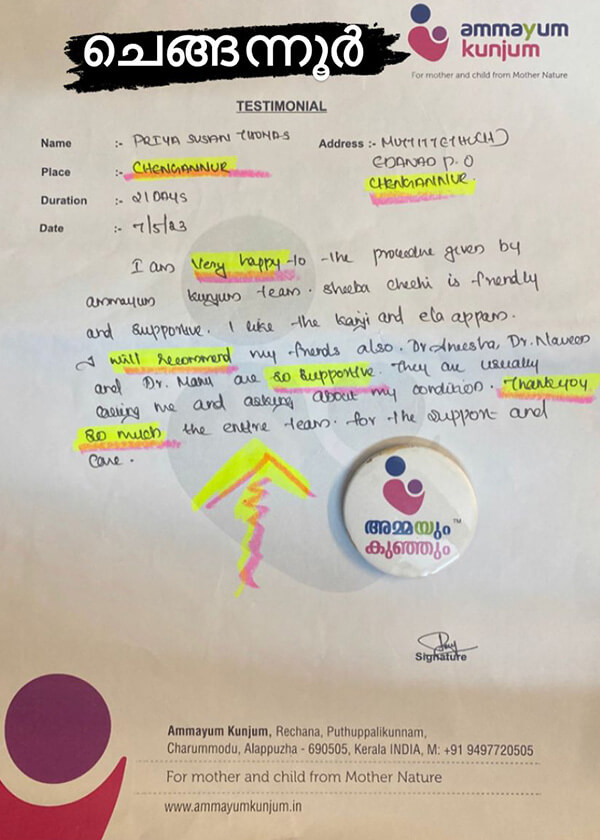 ചെങ്ങന്നൂർ
ammayum
kunjum
For mother and child from Mother Nature
TESTIMONIAL
Name :- PRIYA SUSAN THOMAS
Address :-
EDANAD P.O
CHENGANNUR.
Place :- CHENGANNUR
Duration :- 21 DAYS
Date :- 7/5/23
I am very happy to the procedure given by
ammayum kunjum team. Sheeba chechi is friendly
and supportive. I like the kanji and ela appam.
I will recommend my friends also. Dr Aneesha, Dr. Naveen
and Dr. Manu are so supportive. They are usually
caring me and asking about my condition. Thank you
so much the entire team for the support and
care.
അമ്മയും™
കുഞ്ഞും
Signature
Ammayum Kunjum, Rechana, Puthuppalikunnam,
Charummodu, Alappuzha - 690505, Kerala INDIA, M: +91 9497720505
For mother and child from Mother Nature
www.ammayumkunjum.in